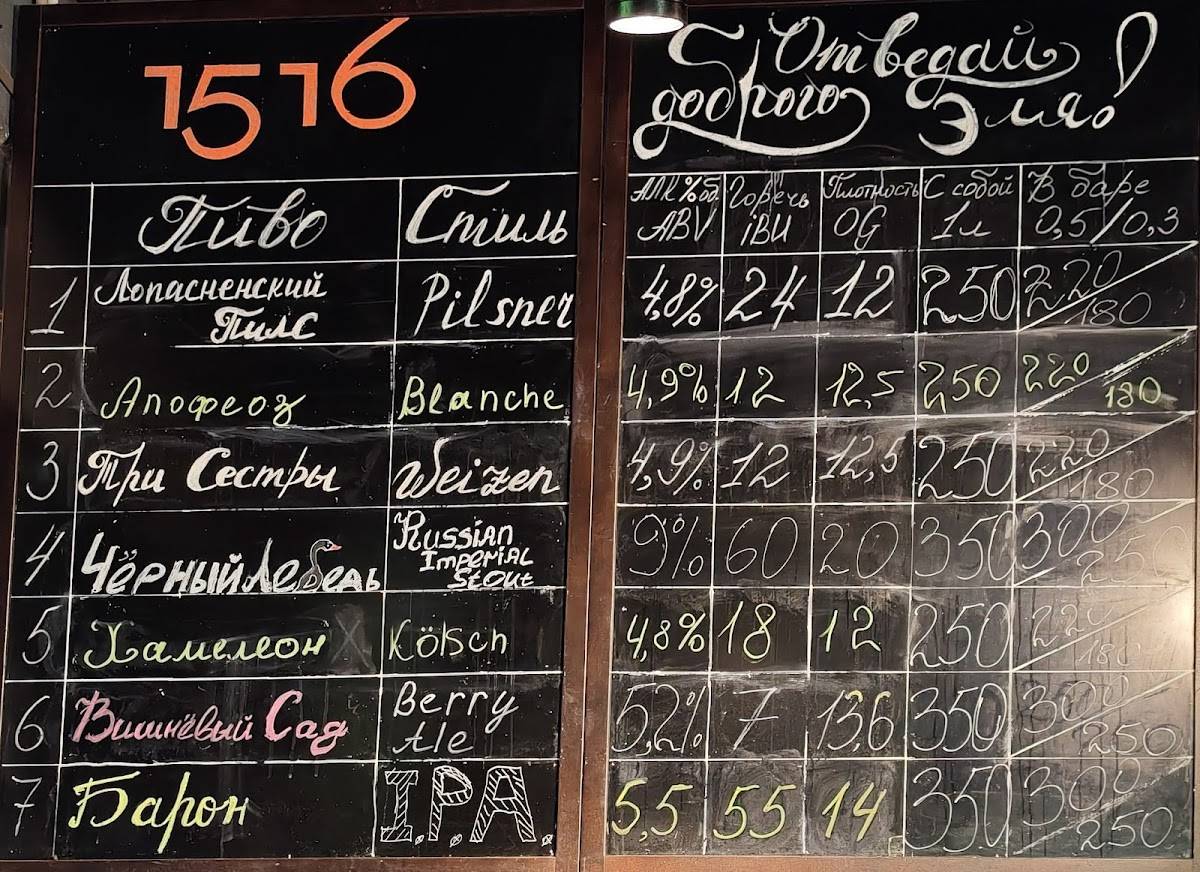 1516
Отведай
доброго Эля!
Пиво Стиль АЛК%об. ABV Горечь iBU Плотность OG С собой 1л В баре 0,5/0,3
1 Лопасненский Пилс Pilsner 4,8% 24 12 250 220/180
2 Апофеоз Blanche 4,9% 12 12,5 250 220/180
3 Три Сестры Weizen 4,9% 12 12,5 250 220/180
4 Чёрный Лебедь Russian Imperial Stout 9% 60 20 350 300/
5 Хамелеон Kölsch 4,8% 18 12 250 220/180
6 Вишнёвый Сад Berry Ale 5,2% 7 13,6 350 300/250
7 Барон I.P.A. 5,5 55 14 350 300/250